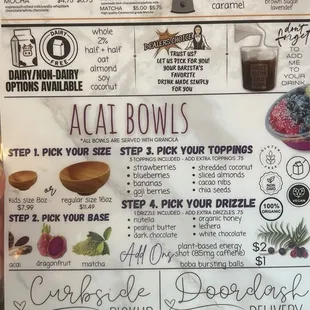 MOCHA $4.75 $5.75
MATCHA $5.00 $5.75
caramel
brown sugar
lavender
DAIRY FREE
DAIRY/NON-DAIRY
OPTIONS AVAILABLE
whole
2%
half + half
oat
almond
soy
coconut
DEALERS CHOICE
TRUST US!
LET US PICK FOR YOU!
YOUR BARISTA'S
FAVORITE
DRINK MADE SIMPLY
FOR YOU
don't forget
TO
ADD
ME
TO
YOUR
DRINK
ACAI BOWLS
*ALL BOWLS ARE SERVED WITH GRANOLA
STEP 1. PICK YOUR SIZE
or
kids size 8oz
$7.99
regular size 16oz
$11.49
STEP 2. PICK YOUR BASE
acai
dragonfruit
matcha
STEP 3. PICK YOUR TOPPINGS
3 TOPPINGS INCLUDED - ADD EXTRA TOPPINGS .75
strawberries
blueberries
bananas
goji berries
shredded coconut
sliced almonds
cacao nibs
chia seeds
STEP 4. PICK YOUR DRIZZLE
1 DRIZZLE INCLUDED - ADD EXTRA DRIZZLES .75
nutella
peanut butter
dark chocolate
organic honey
lechera
white chocolate
100%
ORGANIC
VEGAN
Add Ons
plant-based energy
shot (85mg caffeine)
$2
boba bursting balls
$1
Curbside
PICKUP
Doordash
DELIVERY